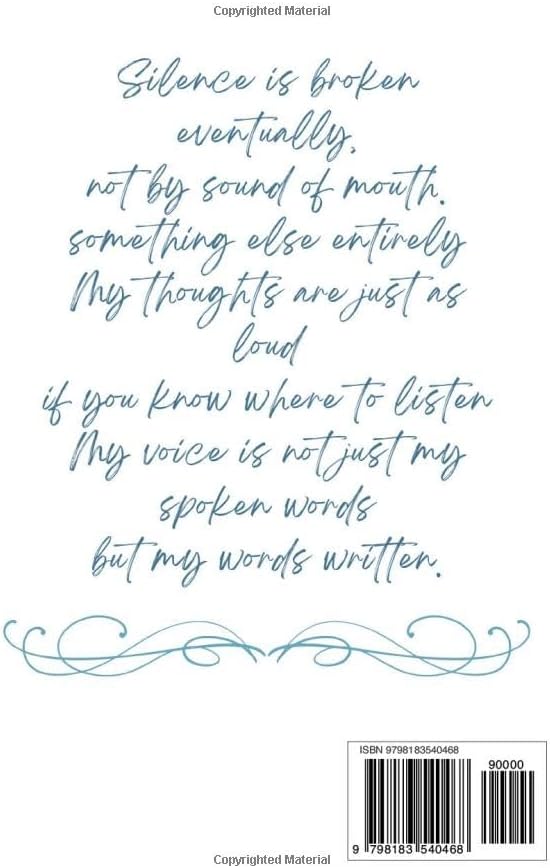 Copyrighted Material
Silence is broken
eventually,
not by sound of mouth.
something else entirely
My thoughts are just as
loud
if you know where to listen
My voice is not just my
spoken words
but my words written.
ISBN 9798183540468
90000
9 798183 540468
Copyrighted Material